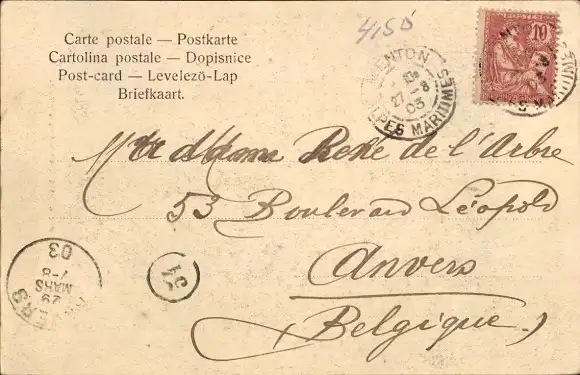 4,50
Carte postale — Postkarte
Cartolina postale — Dopisnice
Post-card — Levelező-Lap
Briefkaart.
MENTON
27 -8
03
ALPES MARITIMES
10
de l'Arbre
53 Boulevard Léopold
Anvers
(Belgique.)
ANVERS
29
MARS
7-8
03
51